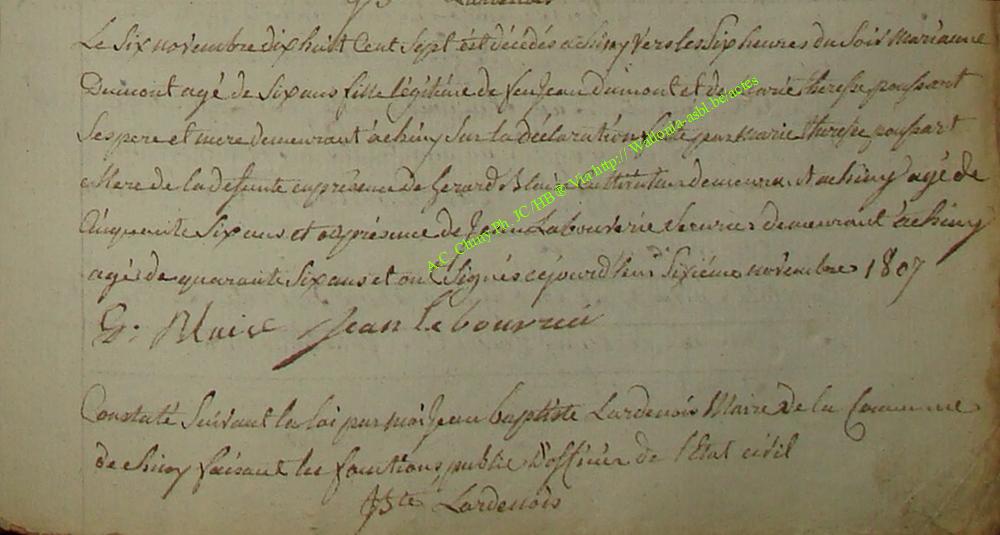 JB Lardenois
Le Six novembre dix huit Cent Sept est décédés achiny vers les Six heures du Soir Marianne
Dumont agé de Six ans fille légitime de feu Jean dumont et de marie therese poupart
Ses pere et mere demeurant a chiny Sur la déclaration faite par marie therese poupart
Mere de la defunte en présence de Gerard Blaise cultivateur demeurant a chiny agé de
Cinquante Six ans et en présence de Jean Labouverie demeurant a chiny
agé de quarante Six ans et ont Signés cejourd'hui Sixième novembre 1807
G. Blaise Jean lebouvrie
Constaté Suivant la loi par moi Jean baptiste Lardenois Maire de la Commune
de chiny faisant les fonctions public D'officier de l'Etat civil
JBte Lardenois
A.C. Chiny Ph. JC /HB @ Via http:// Wallonia-asbl.be/actes